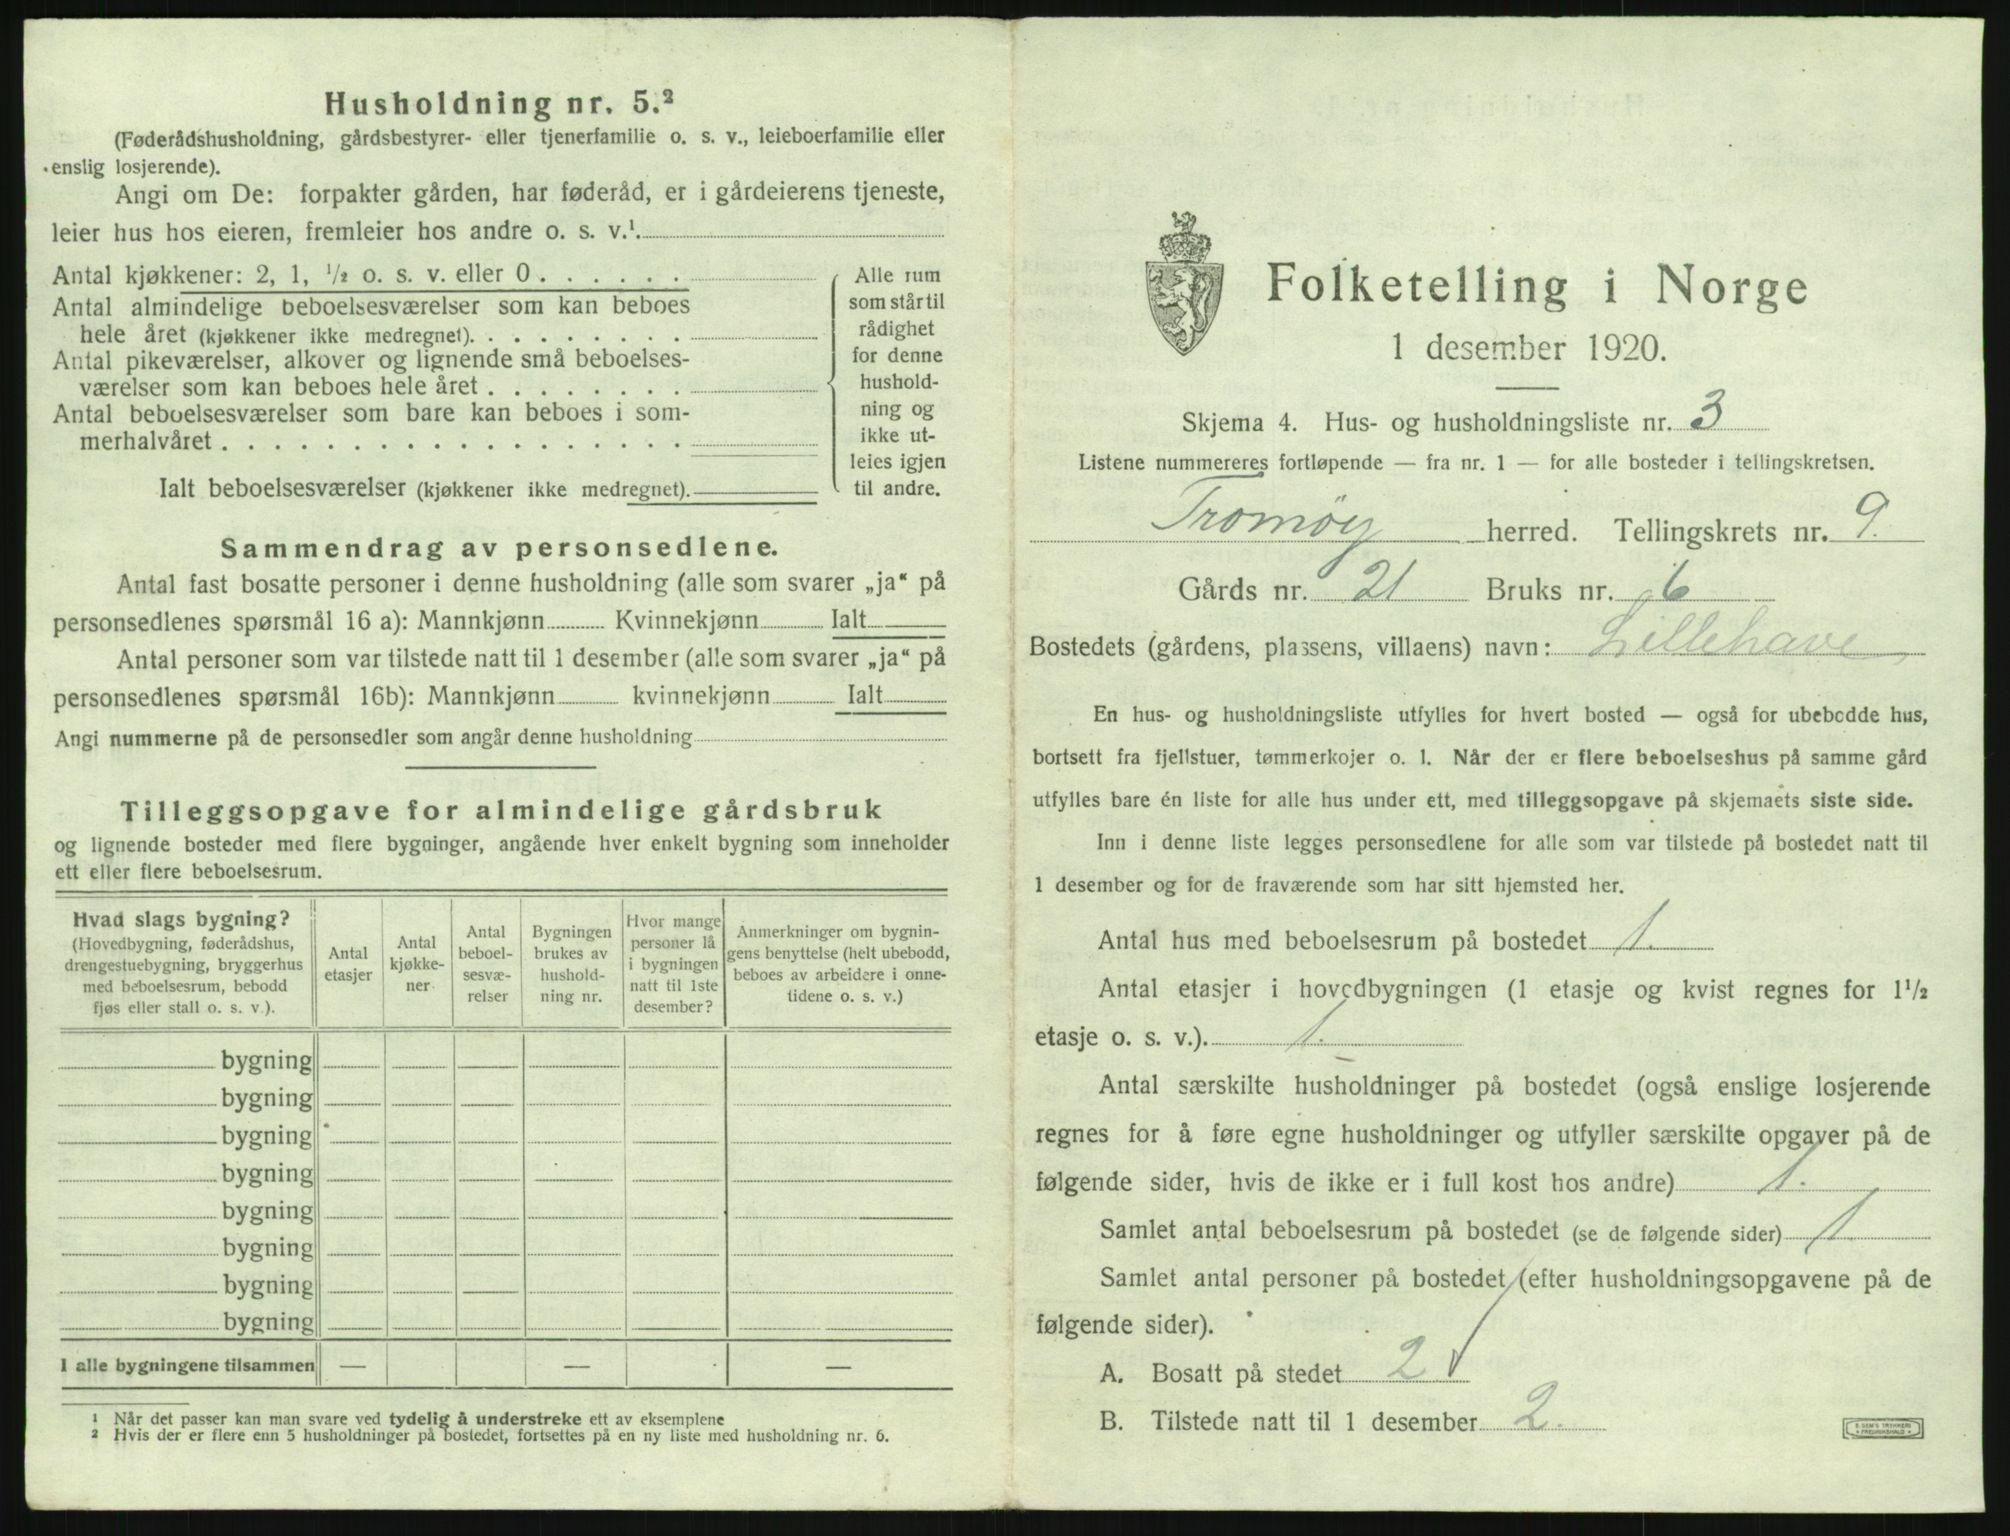 Husholdning nr. 5.²
(Føderådshusholdning, gårdsbestyrer- eller tjenerfamilie o. s. v., leieboerfamilie eller
enslig losjerende).
Angi om De: forpakter gården, har føderåd, er i gårdeierens tjeneste,
leier hus hos eieren, fremleier hos andre o. s. v.¹.
Antal kjøkkener: 2, 1, ¹/₂ o. s. v. eller 0 . . . . . .
Antal almindelige beboelsesværelser som kan beboes
hele året (kjøkkener ikke medregnet). . . . . . . . .
Antal pikeværelser, alkover og lignende små beboelses-
værelser som kan beboes hele året . . . . . . . .
Antal beboelsesværelser som bare kan beboes i som-
merhalvåret . . . . . . . . . . . . . . . . . .
Ialt beboelsesværelser (kjøkkener ikke medregnet).
Alle rum
som står til
rådighet
for denne
hushold-
ning og
ikke ut-
leies igjen
til andre.
Sammendrag av personsedlene.
Antal fast bosatte personer i denne husholdning (alle som svarer „ja“ på
personsedlenes spørsmål 16 a): Mannkjønn Kvinnekjønn Ialt
Antal personer som var tilstede natt til 1 desember (alle som svarer „ja“ på
personsedlenes spørsmål 16b): Mannkjønn kvinnekjønn Ialt
Angi nummerne på de personsedler som angår denne husholdning
Tilleggsopgave for almindelige gårdsbruk
og lignende bosteder med flere bygninger, angående hver enkelt bygning som inneholder
ett eller flere beboelsesrum.
Hvad slags bygning?
(Hovedbygning, føderådshus,
drengestuebygning, bryggerhus
med beboelsesrum, bebodd
fjøs eller stall o. s. v.).
Antal
etasjer
Antal
kjøkke-
ner
Antal
beboel-
sesvæ-
relser
Bygningen
brukes av
hushold-
ning nr.
Hvor mange
personer lå
i bygningen
natt til 1ste
desember?
Anmerkninger om bygnin-
gens benyttelse (helt ubebodd,
beboes av arbeidere i onne-
tidene o. s. v.)
bygning
bygning
bygning
bygning
bygning
bygning
bygning
bygning
I alle bygningene tilsammen — — —
¹ Når det passer kan man svare ved tydelig å understreke ett av eksemplene
² Hvis der er flere enn 5 husholdninger på bostedet, fortsettes på en ny liste med husholdning nr. 6.
Folketelling i Norge
1 desember 1920.
Skjema 4. Hus- og husholdningsliste nr. 3
Listene nummereres fortløpende — fra nr. 1 — for alle bosteder i tellingskretsen.
Tromøy herred. Tellingskrets nr. 9.
Gårds nr. 21 Bruks nr. 6
Bostedets (gårdens, plassens, villaens) navn: Lillehave
En hus- og husholdningsliste utfylles for hvert bosted — også for ubebodde hus,
bortsett fra fjellstuer, tømmerkojer o. l. Når der er flere beboelseshus på samme gård
utfylles bare én liste for alle hus under ett, med tilleggsopgave på skjemaets siste side.
Inn i denne liste legges personsedlene for alle som var tilstede på bostedet natt til
1 desember og for de fraværende som har sitt hjemsted her.
Antal hus med beboelsesrum på bostedet 1.
Antal etasjer i hovedbygningen (1 etasje og kvist regnes for 1¹/₂
etasje o. s. v.). 1.
Antal særskilte husholdninger på bostedet (også enslige losjerende
regnes for å føre egne husholdninger og utfyller særskilte opgaver på de
følgende sider, hvis de ikke er i full kost hos andre) 1.
Samlet antal beboelsesrum på bostedet (se de følgende sider) 1.
Samlet antal personer på bostedet (efter husholdningsopgavene på de
følgende sider).
A. Bosatt på stedet 2
B. Tilstede natt til 1 desember 2.
E. SEM'S TRYKKERI
FREDRIKSHALD